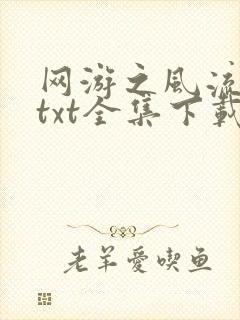 网游之风流
txt全集下載
老羊愛喫鱼